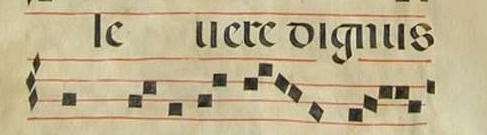 le uere dignus